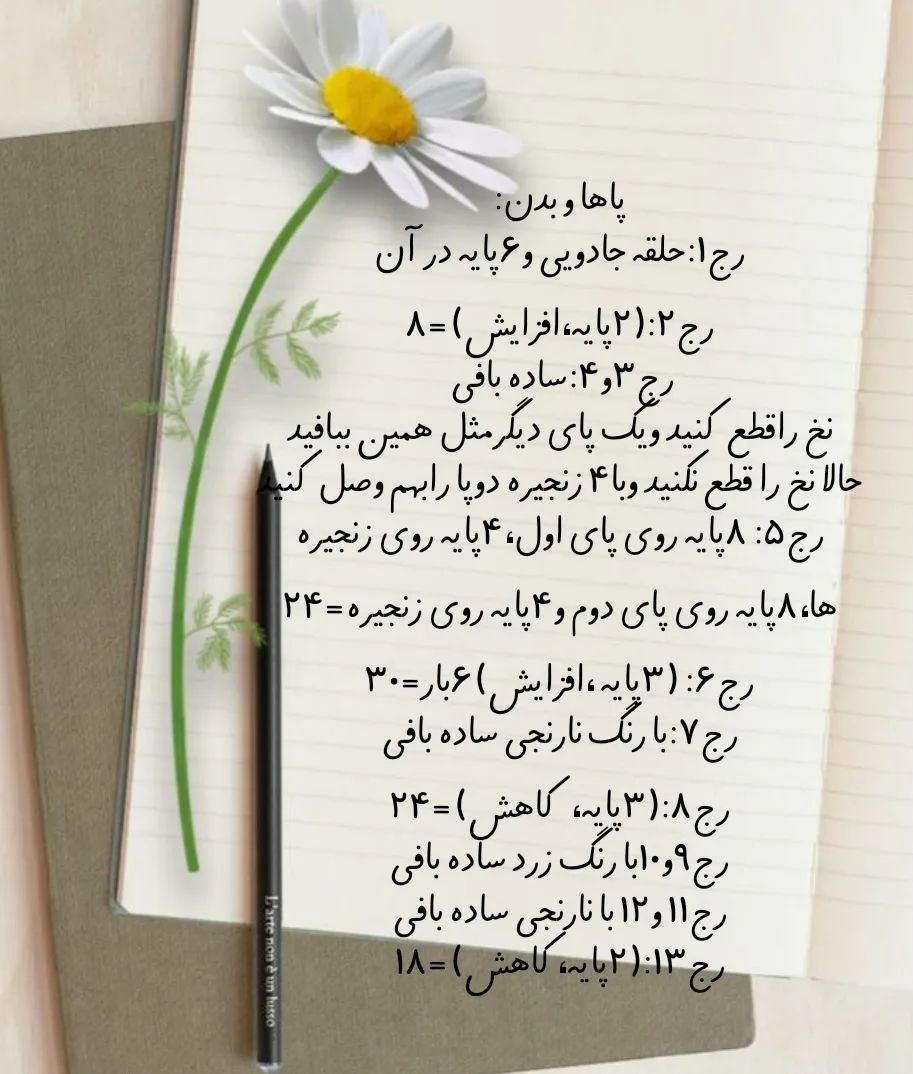 پاها و بدن:
رج۱:حلقه جادویی و۶پایه در آن
رج۲:(۲پایه،افزایش)=۸
رج۳و۴:ساده بافی
نخ راقطع کنید ویک پای دیگرمثل همین ببافید
حالا نخ را قطع نکنید وبا۴ زنجیره دوپا رابهم وصل کنید
رج۵: ۸پایه روی پای اول، ۴پایه روی زنجیره
ها،۸پایه روی پای دوم و۴پایه روی زنجیره=۲۴
رج۶: (۳پایه،افزایش)۶بار=۳۰
رج۷:با رنگ نارنجی ساده بافی
رج۸:(۳پایه، کاهش)=۲۴
رج۹و۱۰با رنگ زرد ساده بافی
رج۱۱و۱۲با نارنجی ساده بافی
رج۱۳:(۲پایه، کاهش)=۱۸
L'arte non è un lusso